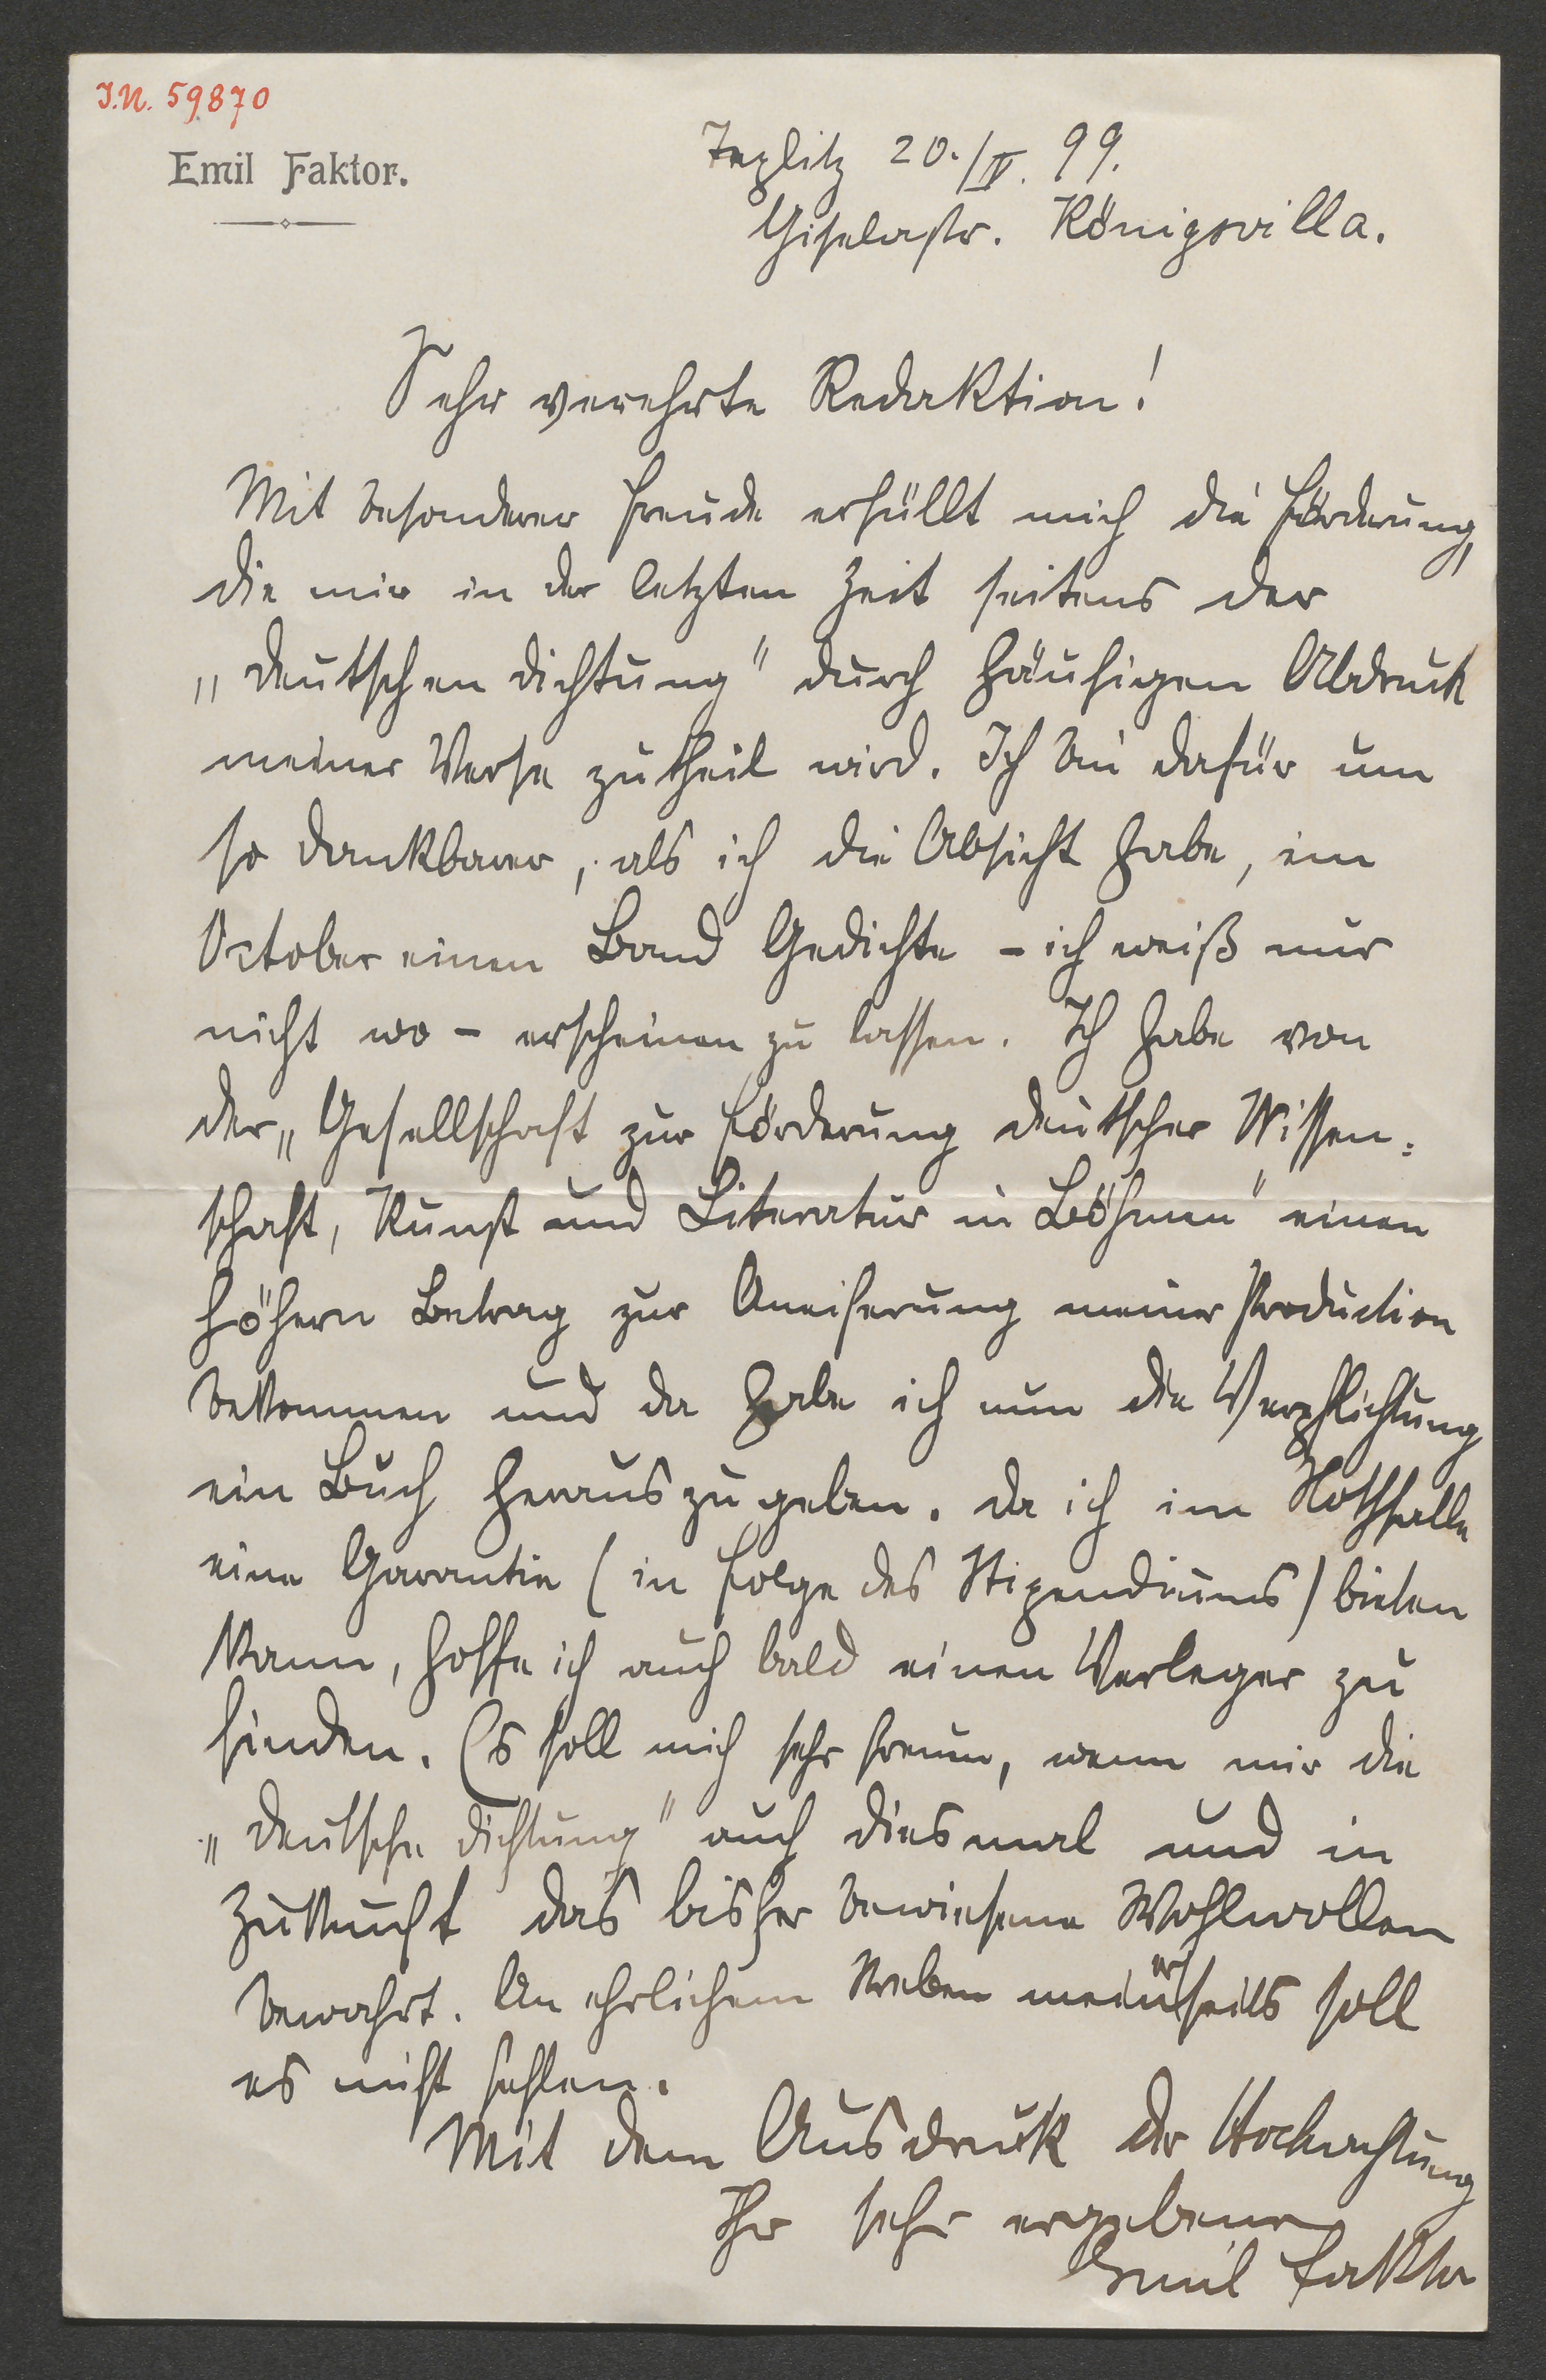 I.N. 59870
Emil Faktor.
Teplitz 20./IV. 99.
Giselastr. Königsvilla.
Sehr verehrte Redaktion!
Mit besonderer Freude erfüllt mich die Förderung,
die mir in der letzten Zeit seitens der
„Deutschen Dichtung" durch häufigen Abdruck
meiner Verse zutheil wird. Ich bin dafür um
so dankbarer, als ich die Absicht habe, im
October einen Band Gedichte – ich weiß nur
nicht wo – erscheinen zu lassen. Ich habe von
der „Gesellschaft zur Förderung deutscher Wissen=
schaft, Kunst und Literatur in Böhmen" einen
höhern Betrag zur Aneiferung meiner Production
bekommen und da habe ich nun die Verpflichtung
ein Buch herauszugeben. Da ich im Nothfalle
eine Garantie (in Folge des Stipendiums) bieten
kann, hoffe ich auch bald einen Verleger zu
finden. Es soll mich sehr freuen, wenn mir die
„Deutsche Dichtung" auch diesmal und in
Zukunft das bisher bewiesene Wohlwollen
bewahrt. An ehrlichem Streben meinerseits soll
es nicht fehlen.
Mit dem Ausdruck der Hochachtung
Ihr sehr ergebener
Emil Faktor